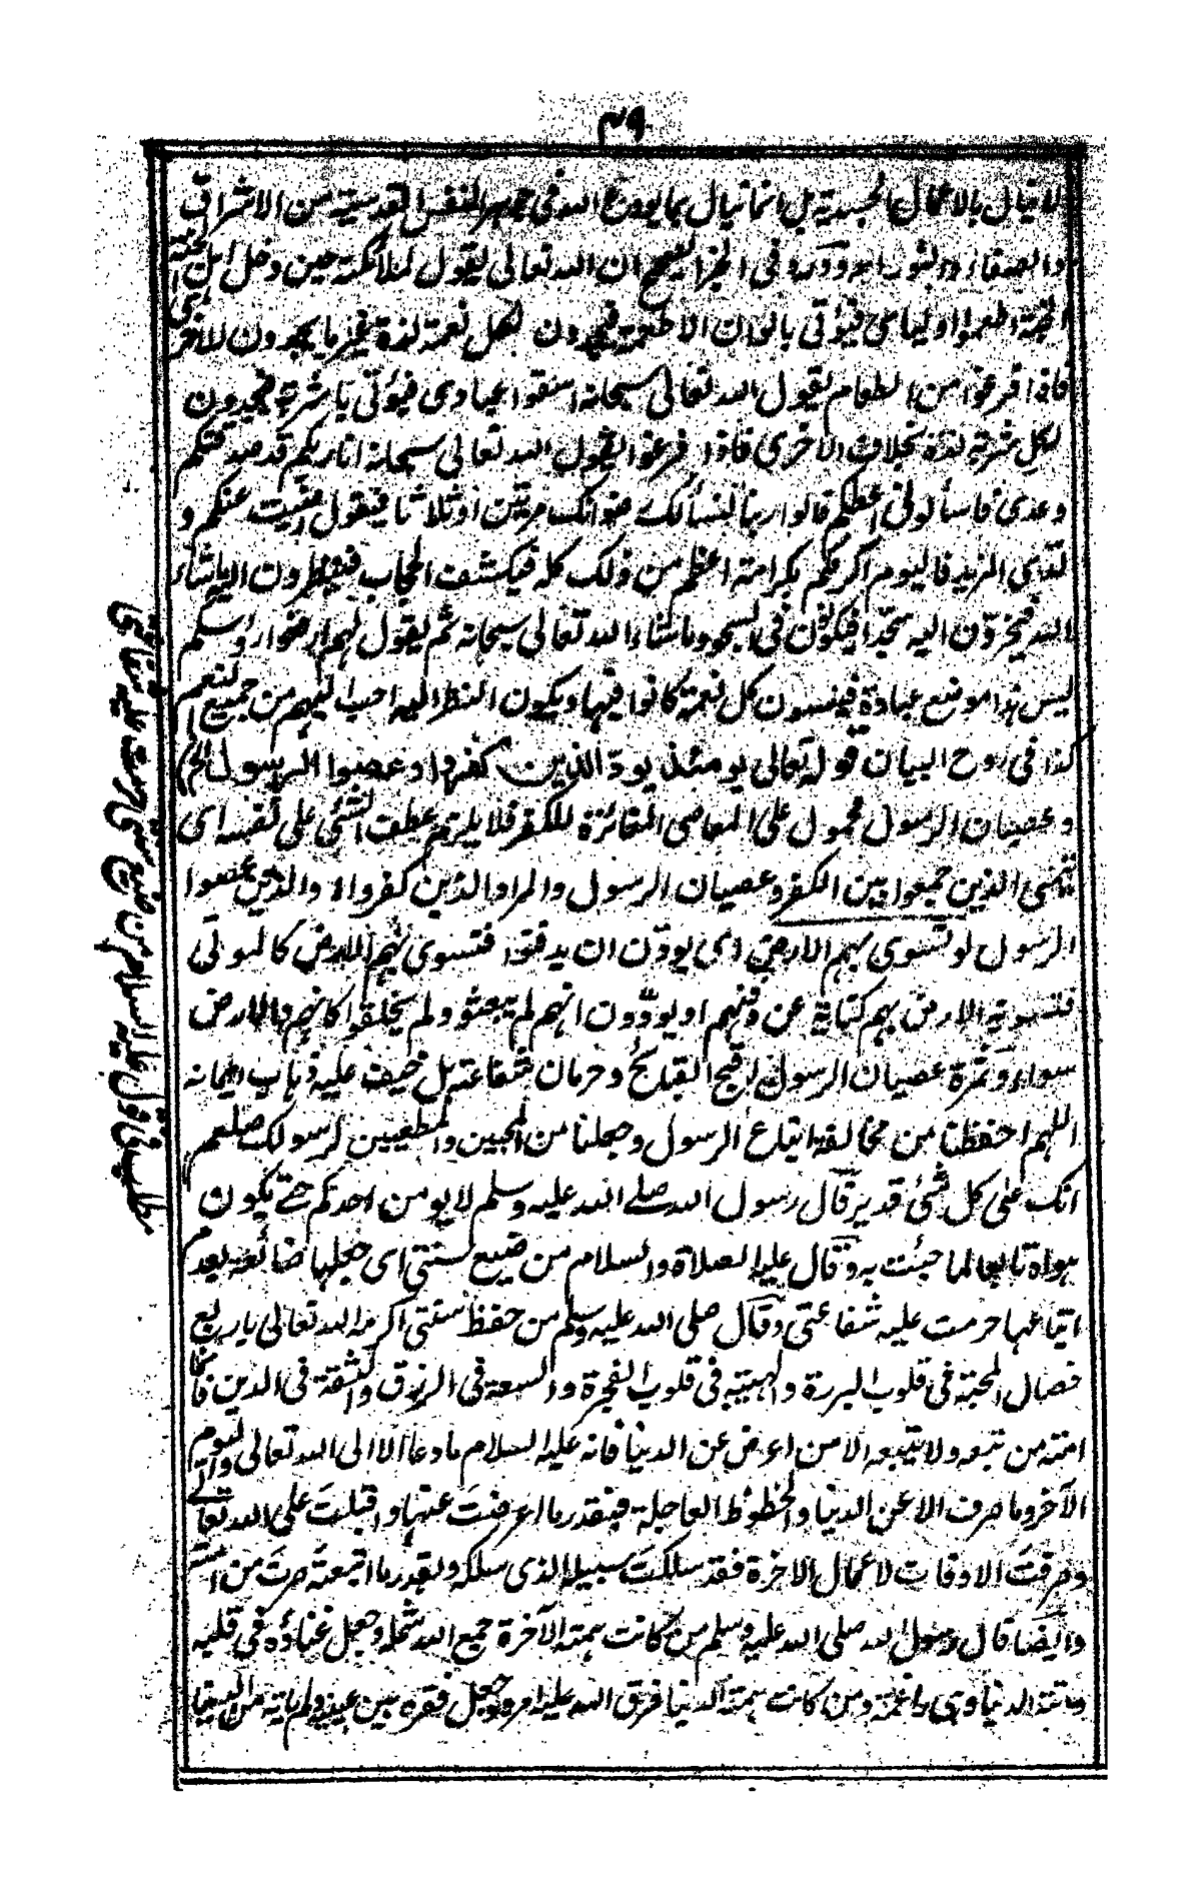 ٤٩
لا ينال بالاعمال الجسدية بل انما تنال بما يودع الله في جوهر النفس القدسية من الاشراق
والصفاء والنور اه وورد في الخبر الصحيح ان الله تعالى يقول لملائكته حين دخل اهل الجنة
الجنة اطعموا اوليائي فيؤتى بالوان الاطعمة فيجدون لكل نعمة لذة غير ما يجدون للاخرى
فاذا فرغوا من الطعام يقول الله تعالى سبحانه اسقوا عبادي فيؤتى باشربة فيجدون
لكل شربة لذة بخلاف الاخرى فاذا فرغوا يقول الله تعالى سبحانه انا ربكم قد صدقتكم
وعدى فاسألوني اعطكم قالوا ربنا نسألك رضوانك مرتين او ثلاثا فيقول رضيت عنكم و
لدي المزيد فاليوم اكرمكم بكرامة اعظم من ذلك كله فيكشف الحجاب فينظرون اليه ماشاء
الله فيخرون اليه سجدا فيكونون في السجود ماشاء الله تعالى سبحانه ثم يقول لهم ارفعوا رؤسكم
ليس هذا موضع عبادة فينسون كل نعمة كانوا فيها ويكون النظر اليه احب اليهم من جميع النعم
كذا في روح البيان قوله تعالى يومئذ يود الذين كفروا وعصوا الرسول الخ
وعصيان الرسول محمول على المعاصي المغائرة للكفر فلا يلزم عطف الشئ على نفسه اي
يتمنى الذين جمعوا بين الكفر وعصيان الرسول والمراد الذين كفروا اه والذين عصوا
الرسول لو تسوى بهم الارض اي يودون ان يدفنوا فتسوى بهم الارض كالموتى
فتسوية الارض بهم كناية عن دفنهم او يودون انهم لم يبعثوا ولم يخلقوا كانهم والارض
سواء وثمرة عصيان الرسول اقبح القبائح وحرمان شفاعته بل خيف عليه ذهاب ايمانه
اللهم احفظنا من مخالفة اتباع الرسول وجعلنا من المحبين والمطيعين لرسولك صلعم
انك على كل شئ قدير قال رسول الله صلى الله عليه وسلم لا يومن احدكم حتى يكون
هواه تابعا لما جئت به وقال عليه الصلاة والسلام من ضيع سنتي اي جعلها ضائعة بعدم
اتباعها حرمت عليه شفاعتي وقال صلى الله عليه وسلم من حفظ سنتي اكرمه الله تعالى باربع
خصال المحبة في قلوب البررة والهيبة في قلوب الفجرة والسعة في الرزق والثقة في الدين فانما
امته من تبعه ولا يتبعه الا من اعرض عن الدنيا فانه عليه السلام ما دعا الا الى الله تعالى واليوم
الآخر وما صرف الا عن الدنيا والحظوظ العاجلة فبقدر ما اعرضت عنها واقبلت على الله تعالى
وصرفت الاوقات لاعمال الاخرة فقد سلكت سبيله الذي سلكه وبقدر ما اتبعته صرت من امته
وايضا قال رسول الله صلى الله عليه وسلم من كانت همته الآخرة جمع الله شمله وجعل غناؤه في قلبه
واتته الدنيا وهي راغمة ومن كانت همته الدنيا فرق الله عليه امره وجعل فقره بين عينيه ولم ياته من الدنيا
مطلب في قول عليه السلام من ضيع سنتي حرمت عليه شفاعتي